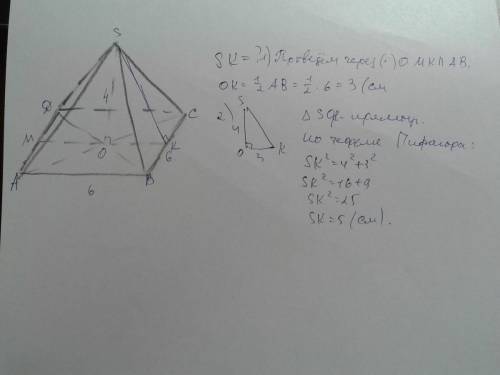 S
4
D
C
M
O
K
6
A
B
6
SK = ? 1) Проведём через (·) O MK ∥ AB.
OK = 1/2 AB = 1/2 · 6 = 3 (см
2)
S
4
O
3
K
по теореме Пифагора:
SK² = 4² + 3²
SK² = 16 + 9
SK² = 25
SK = 5 (см).